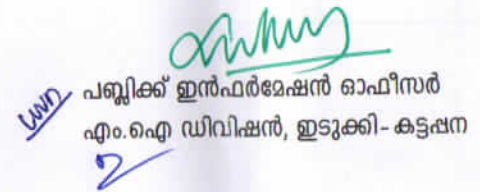 പബ്ലിക്ക് ഇൻഫർമേഷൻ ഓഫീസർ
എം.ഐ ഡിവിഷൻ, ഇടുക്കി-കട്ടപ്പന